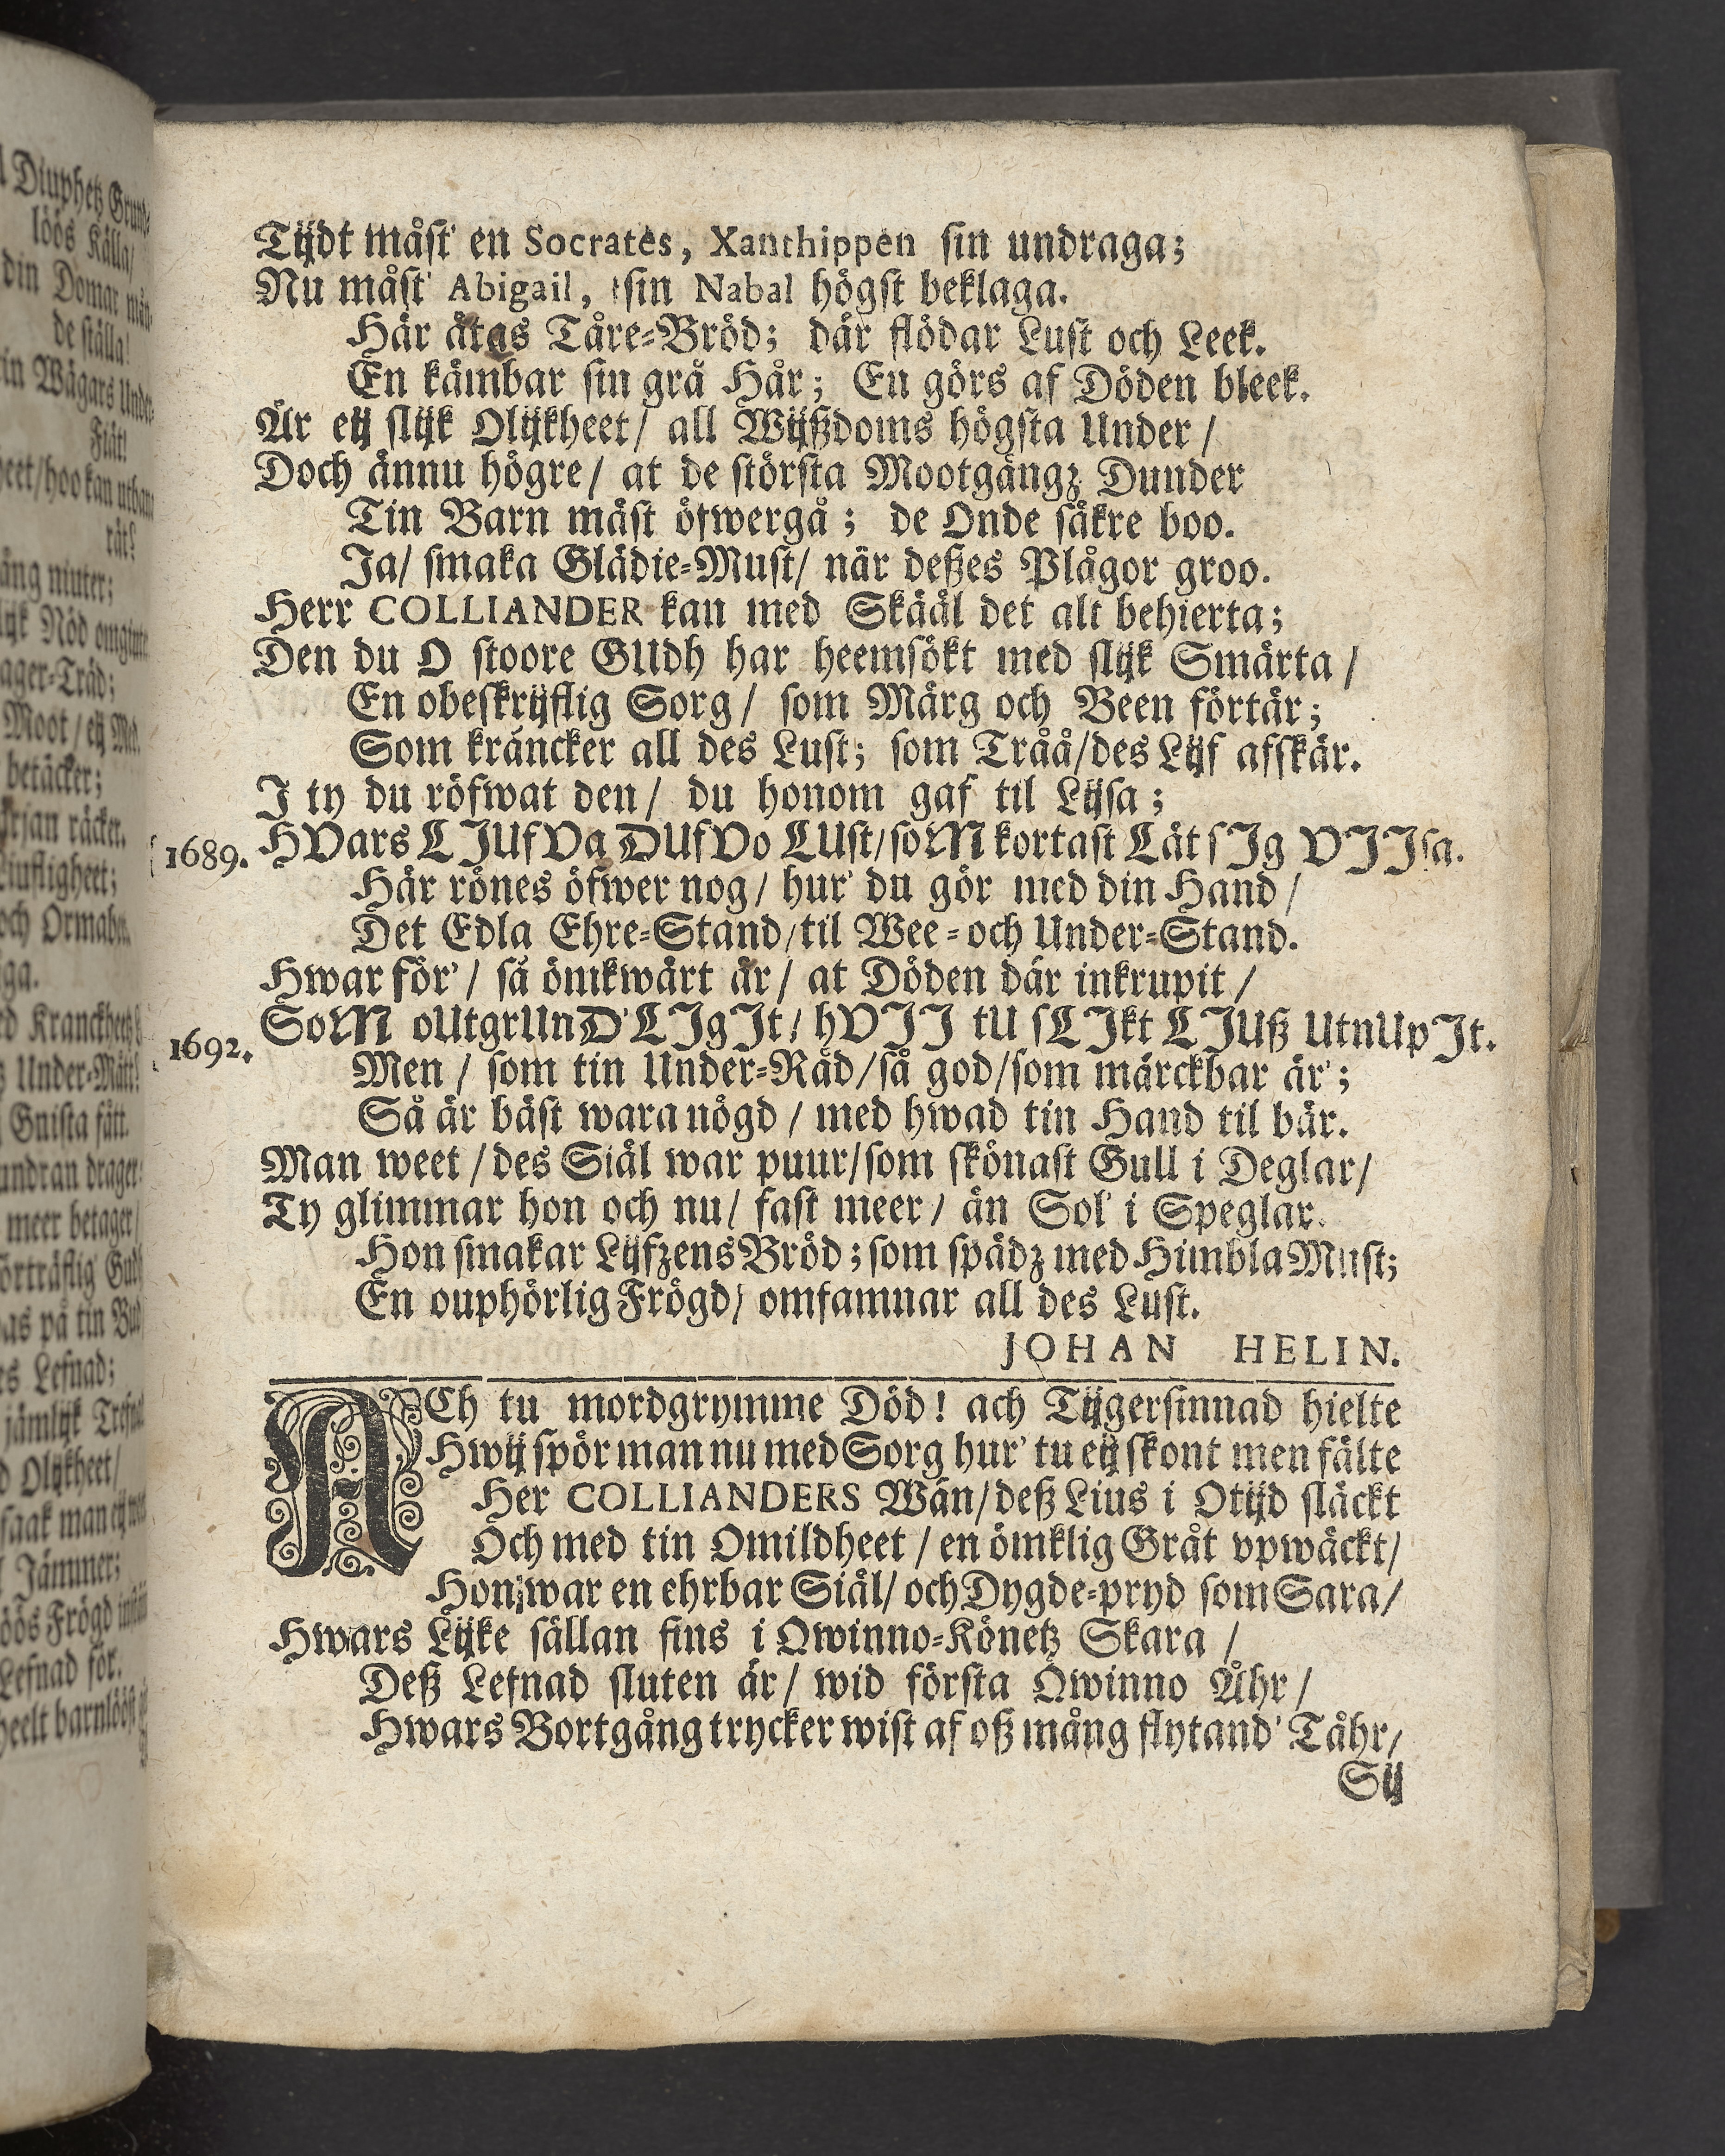 Tijdt måst' en Socrates, Xanthippen sin undraga;
Nu måst' Abigail, sin Nabal högst beklaga.
Här ätas Tåre-Bröd; där flödar Lust och Leek.
En kämbar sin grå Hår; En görs af Döden bleek.
Är eij slijk Olijkheet / all Wijßdoms högsta Under /
Doch ännu högre / at de största Mootgångz Dunder
Tin Barn mäst öfwergå; de Onde säkre boo.
Ja / smaka Glädie-Must / när deßes Plågor groo.
Herr COLLIANDER kan med Skääl det alt behierta;
Den du O stoore GUdh har heemsökt med slijk Smärta /
En obeskrijflig Sorg / som Märg och Been förtär;
Som kräncker all des Lust; som Tråå / des Lijf afskär.
I ty du röfwat den / du honom gaf til Lijsa;
1689. HVars LJUfVa DUfVo LUst / soM kortast Lät sJg VJJsa.
Här rönes öfwer nog / hur' du gör med din Hand /
Det Edla Ehre-Stand / til Wee- och Under-Stand.
Hwar för' / så ömkwärt är / at Döden där inkrupit /
1692. SoM oUtgrUnD'LJgJt / hVJJ tU sLJkt LJUß UtnUpJt.
Men / som tin Under-Råd / så god / som märckbar är';
Så är bäst wara nögd / med hwad tin Hand til bär.
Man weet / des Siäl war puur / som skönast Gull i Deglar /
Ty glimmar hon och nu / fast meer / än Sol' i Speglar.
Hon smakar Lijfzens Bröd; som spädz med Himbla Must;
En ouphörlig Frögd / omfamnar all des Lust.
JOHAN HELIN.
ACh tu mordgrymme Död! ach Tijgersinnad hielte
Hwij spör man nu med Sorg hur' tu eij skont men fälte
Her COLLIANDERS Wän / deß Lius i Otijd släckt
Och med tin Omildheet / en ömklig Gråt vpwäckt /
Hon war en ehrbar Siäl / och Dygde-pryd som Sara /
Hwars Lijke sällan fins i Qwinno-Könetz Skara /
Deß Lefnad sluten är / wid första Qwinno Åhr /
Hwars Bortgång trycker wist af oß mång flytand' Tåhr /
Sij